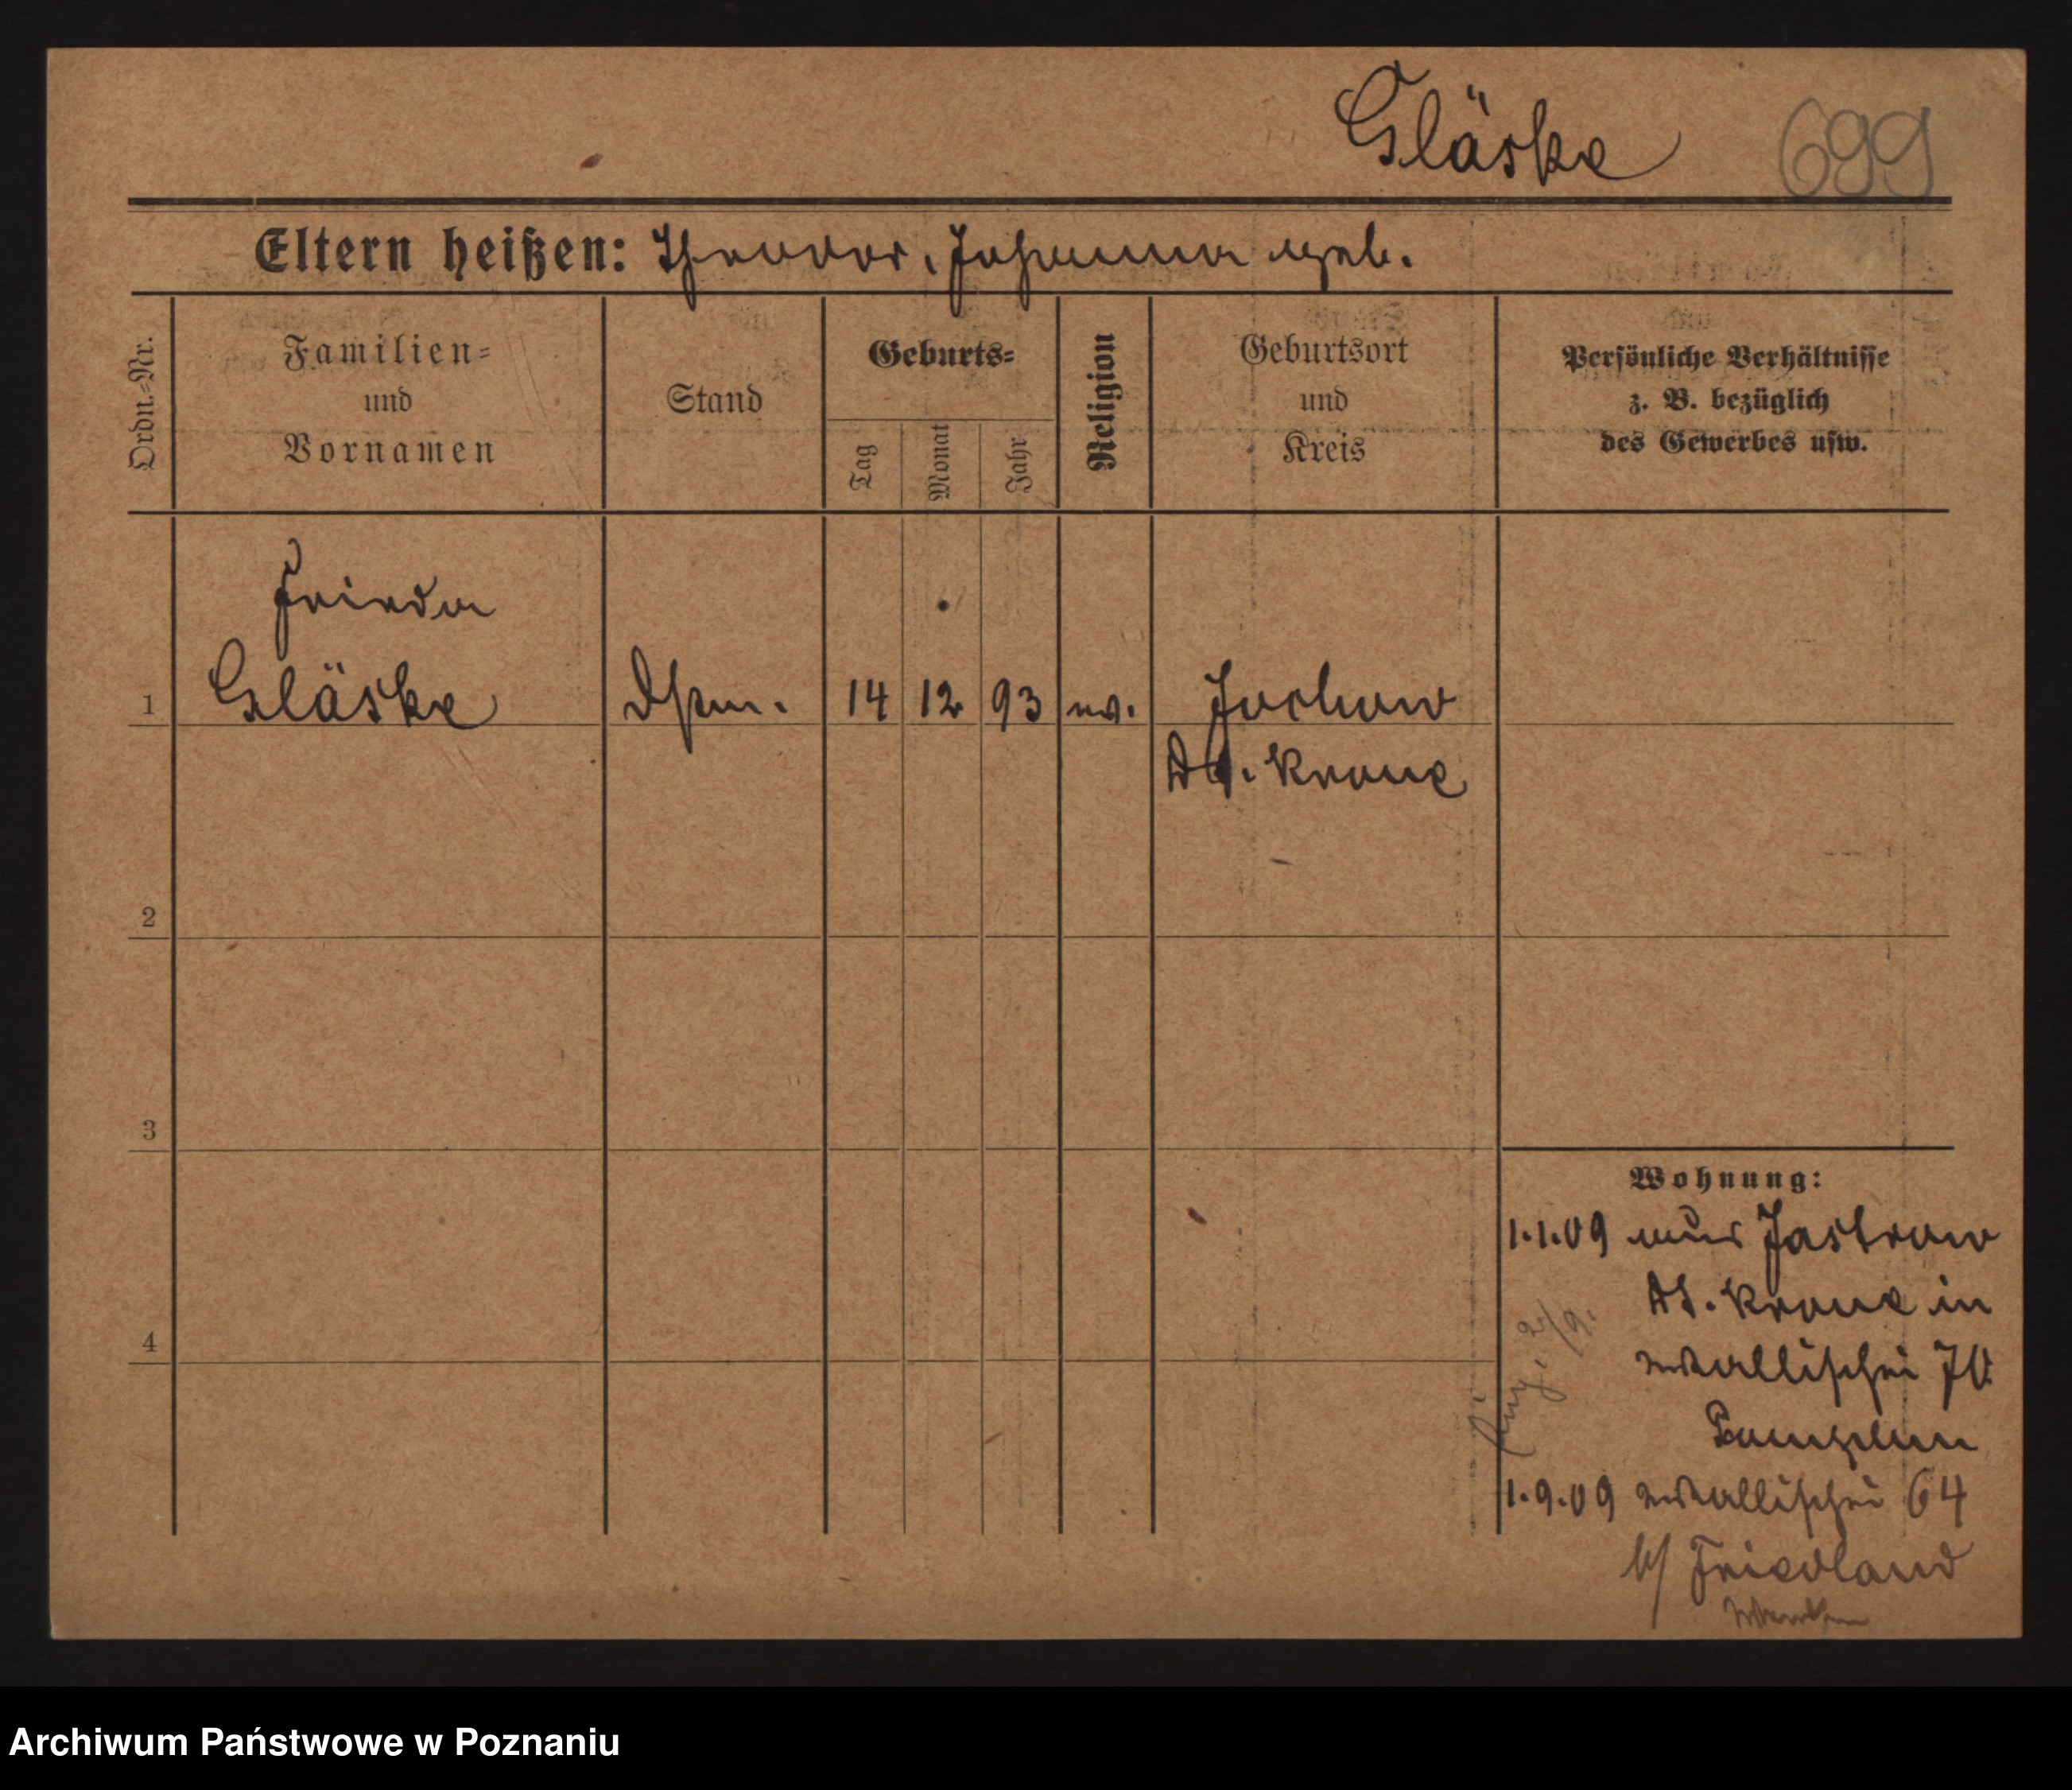 Gläske 699
Eltern heißen: Theodor, Johanna geb.
Ordn.-Nr.
Familien-
und
Vornamen
Stand
Geburts-
Tag
Monat
Jahr
Religion
Geburtsort
und
Kreis
Persönliche Verhältnisse
z. B. bezüglich
des Gewerbes usw.
Frieda
1 Gläske 14 12 93 ev.
Dt. Krone
2
3
Wohnung:
1.1.09 aus Jastrow
Dt. Krone in
4
Wallischei
1.9.09 Wallischei 64
b/ Friedland
Archiwum Państwowe w Poznaniu